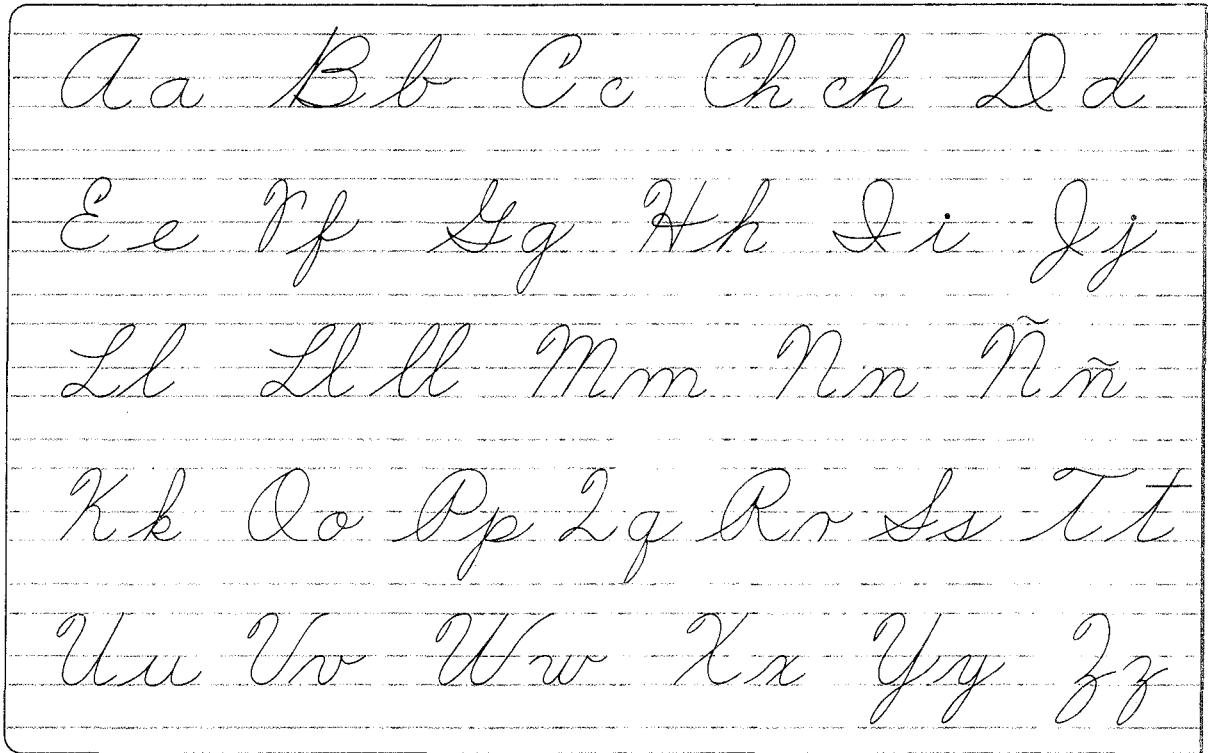 A a B b C c Ch ch D d
E e F f G g H h I i J j
L l Ll ll M m N n Ñ ñ
K k O o P p Q q R r S s T t
U u V v W w X x Y y Z z